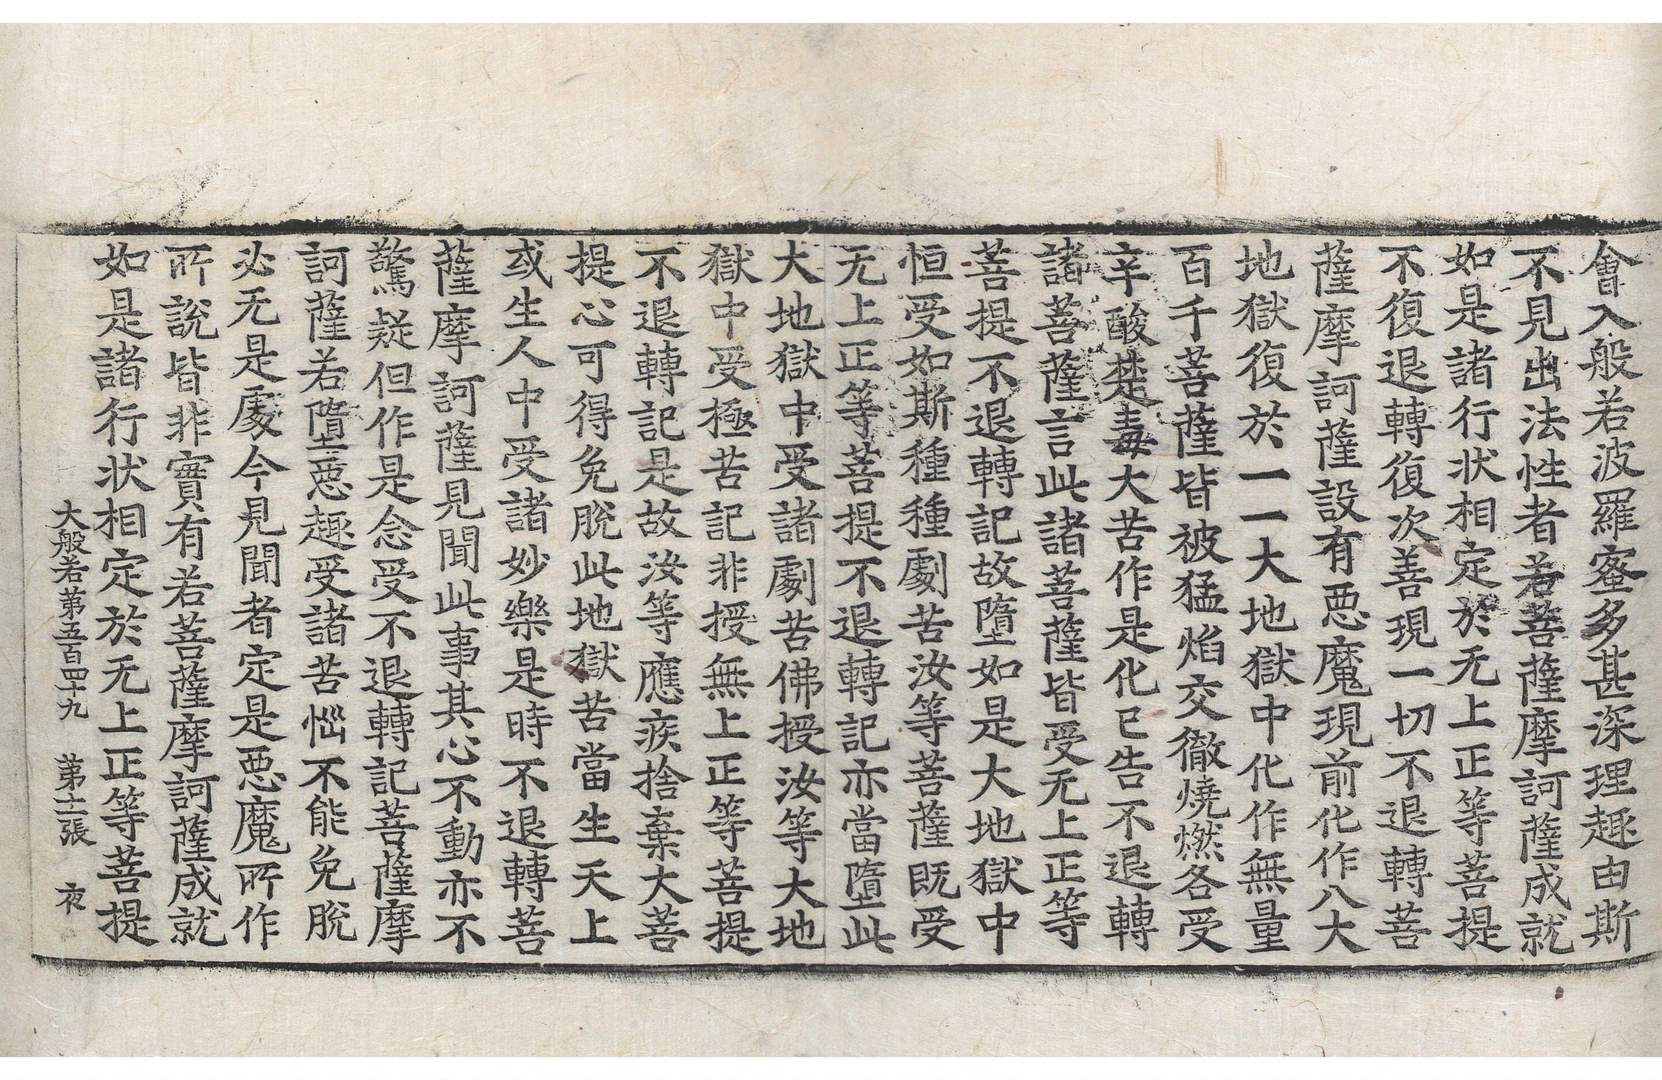 會入般若波羅蜜多甚深理趣由斯
不見出法性者若菩薩摩訶薩成就
如是諸行狀相定於无上正等菩提
不復退轉復次善現一切不退轉菩
薩摩訶薩設有惡魔現前化作八大
地獄復於一一大地獄中化作無量
百千菩薩皆被猛焰交徹燒燃各受
辛酸楚毒大苦作是化已告不退轉
諸菩薩言此諸菩薩皆受无上正等
菩提不退轉記故墮如是大地獄中
恒受如斯種種劇苦汝等菩薩既受
无上正等菩提不退轉記亦當墮此
大地獄中受諸劇苦佛授汝等大地
獄中受極苦記非授無上正等菩提
不退轉記是故汝等應疾捨棄大菩
提心可得免脫此地獄苦當生天上
或生人中受諸妙樂是時不退轉菩
薩摩訶薩見聞此事其心不動亦不
驚疑但作是念受不退轉記菩薩摩
訶薩若墮惡趣受諸苦惱不能免脫
必无是處今見聞者定是惡魔所作
所說皆非實有若菩薩摩訶薩成就
如是諸行狀相定於无上正等菩提
大般若第五百四十九 第十二張 夜